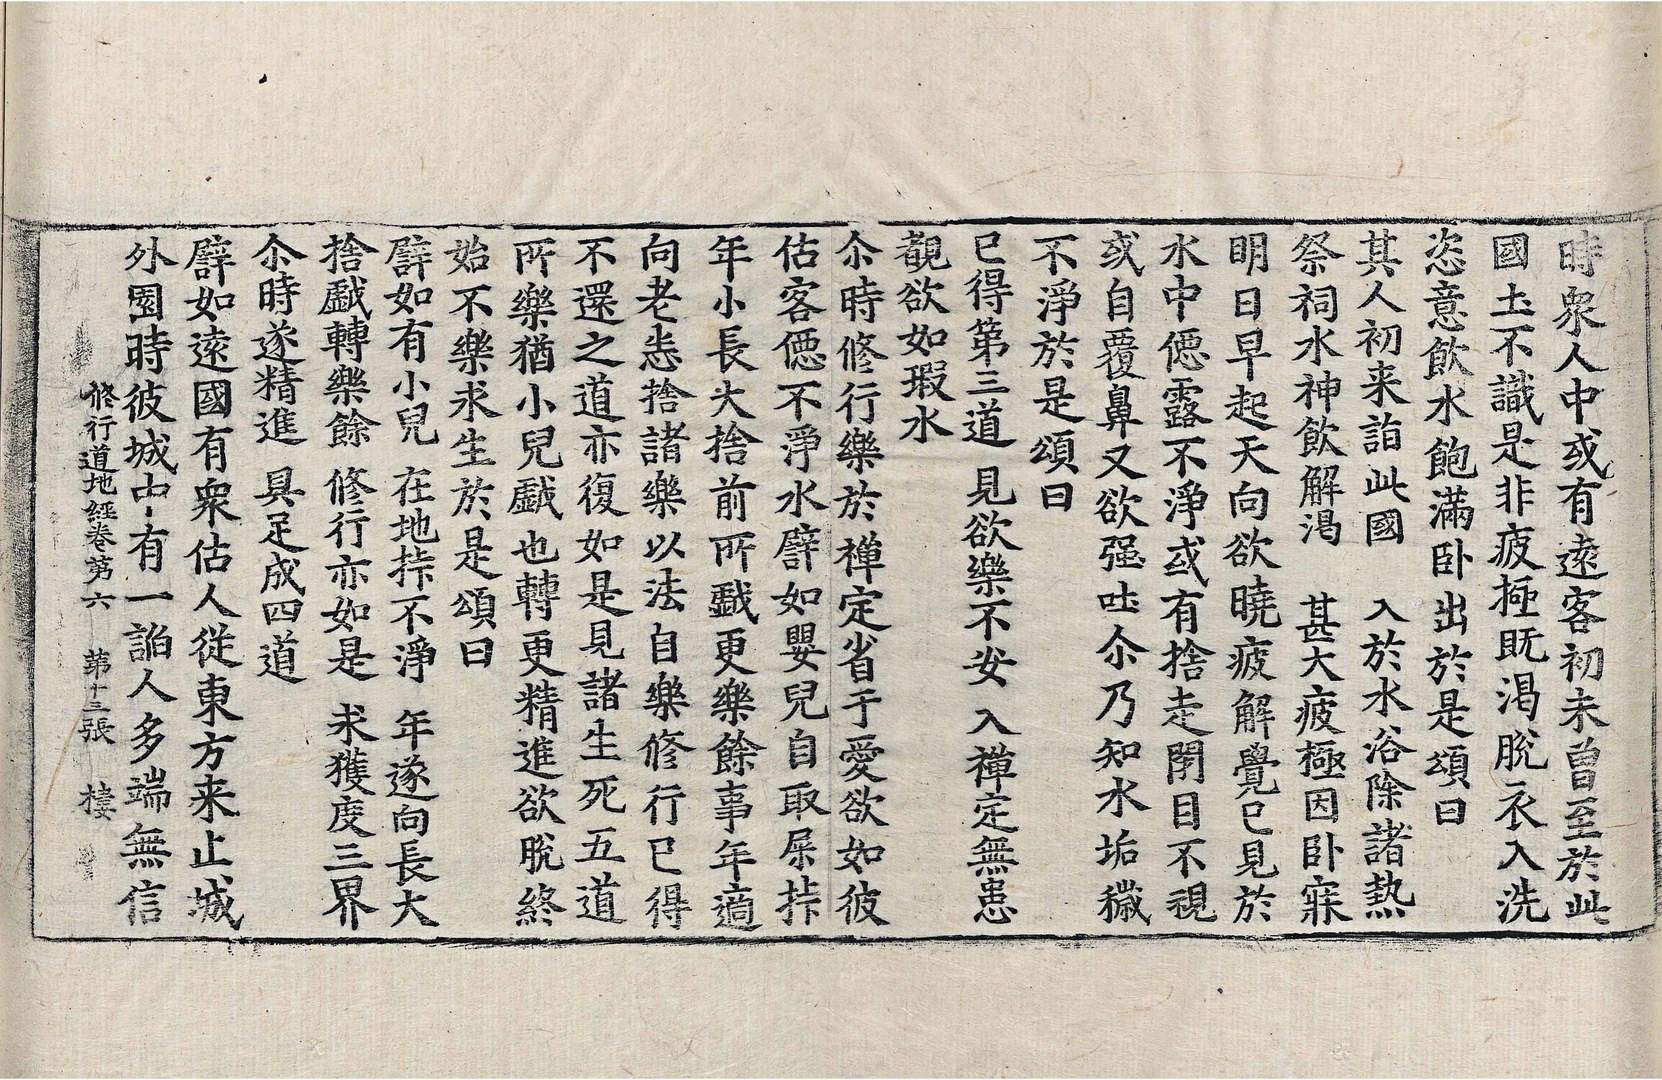 時衆人中或有遠客初未曾至於此
國土不識是非疲極既渴脫衣入洗
恣意飲水飽滿卧出於是頌曰
其人初来詣此國　入於水浴除諸熱
祭祠水神飲解渴　甚大疲極因卧寐
明日早起天向欲曉疲解覺已見於
水中僫露不淨或有捨走閇目不視
或自覆鼻又欲强吐尒乃知水垢穢
不淨於是頌曰
已得第三道　見欲樂不安　入禪定無患
觀欲如瑕水
尒時修行樂於禪定省于愛欲如彼
估客僫不淨水譬如嬰兒自取屎㧊
年小長大捨前所戱更樂餘事年適
向老悉捨諸樂以法自樂修行已得
不還之道亦復如是見諸生死五道
所樂猶小兒戱也轉更精進欲脫終
始不樂求生於是頌曰
譬如有小兒　在地㧊不淨　年遂向長大
捨戱轉樂餘　修行亦如是　求獲度三界
尒時遂精進　具足成四道
譬如遠國有衆估人從東方来止城
外園時彼城中有一諂人多端無信
修行道地經卷第六　第十三張　棲